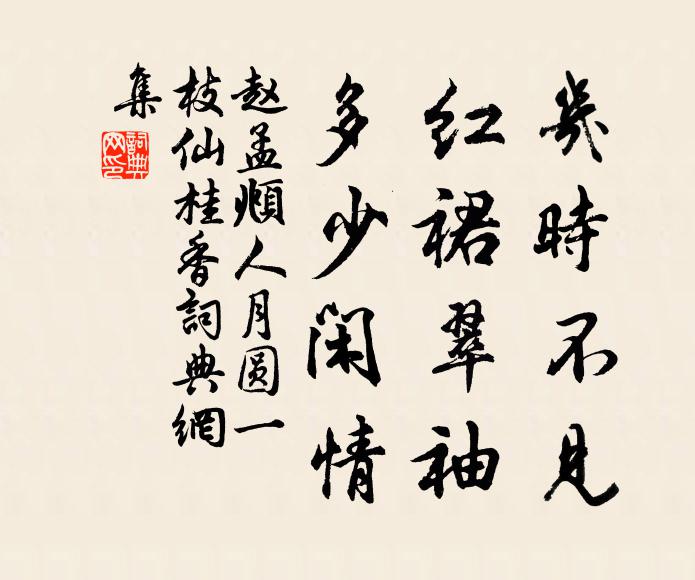 幾時不見
红裙翠袖
多少閑情
赵孟頫人月圆一
枝仙桂香詞典網
集
詞典
网印